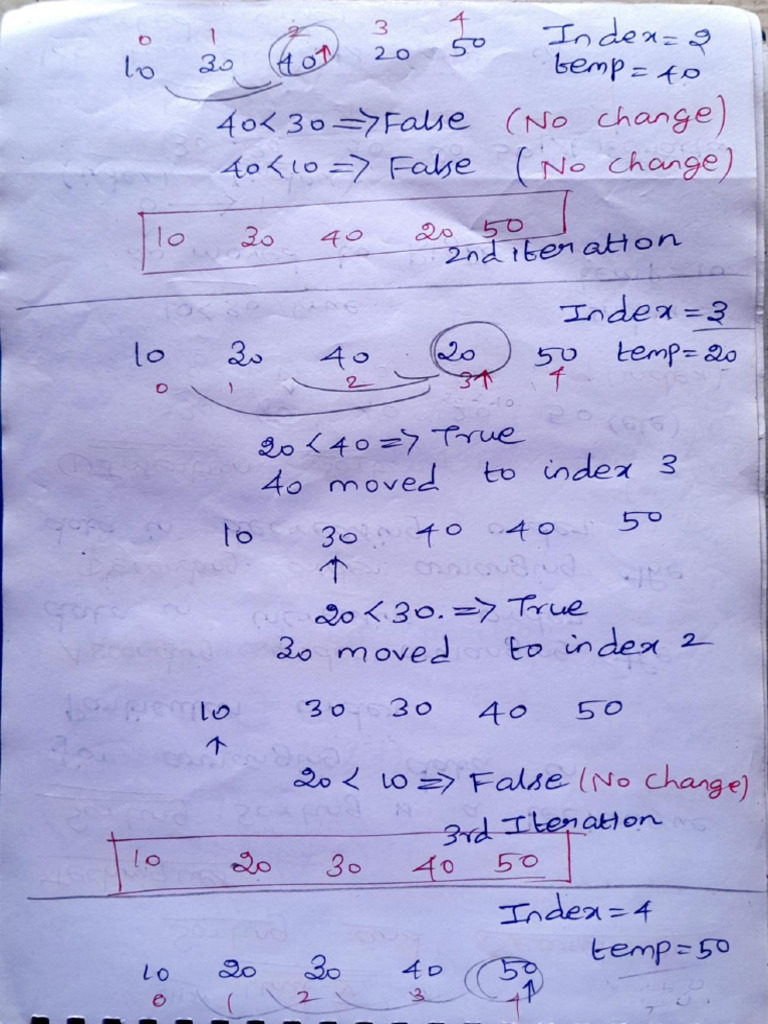 0 1 2 3 4
10 30 40↑ 20 50 Index=2
temp=40
40<30=>False (No change)
40<10=> False (No change)
10 30 40 20 50
2nd iteration
Index=3
10 30 40 20 50 temp=20
0 1 2 3↑ 4
20<40=> True
40 moved to index 3
10 30 40 40 50
↑
20<30.=> True
30 moved to index 2
10 30 30 40 50
↑
20< 10=> False (No change)
3rd Iteration
10 20 30 40 50
Index=4
temp=50
10 20 30 40 50↑
0 1 2 3 4